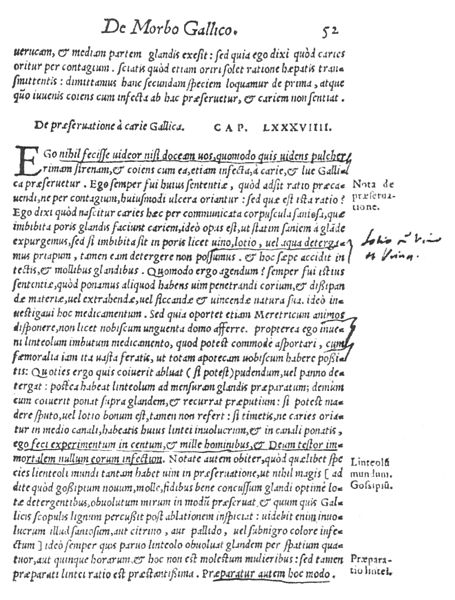 De Morbo Gallico. 52
uerucam, & mediam partem glandis exesit: sed quia ego dixi quòd caries
oritur per contagium. sciatis quòd etiam oriri solet ratione hæpatis trans-
smittentis: dimittamus hanc secundam speciem loquamur de prima, atque
quo iuuenis coiens cum infecta ab hac præseruetur, & cariem non sentiat.
De præseruatione à carie Gallica. CAP. LXXXVIIII.
EGo nihil fecisse uideor nisi doceam uos, quomodo quis uidens pulcher
rimam sirenam, & coiens cum ea, etiam infecta, à carie, & lue Galli-
ca præseruetur. Ego semper fui huius sententiæ, quòd adsit ratio præca-
uendi, ne per contagium, huiusmodi ulcera oriantur: sed quæ est ista ratio?
Nota de
præserua-
tione.
Ego dixi quòd nascitur caries hæc per communicata corpuscula saniosa, quæ
imbibita poris glandis faciunt cariem, ideò opus est, ut statim saniem à glāde
expurgemus, sed si imbibita sit in poris licet uino, lotio, uel aqua deterga-
mus priapum, tamen eam detergere non possumus. & hoc sæpe accidit in
tectis, & mollibus glandibus. Quomodo ergo agendum? semper fui istius
Lotio Vino
Urina.
sententiæ, quòd ponamus aliquod habens uim penetrandi corium, & dissipan
dæ materiæ, uel extrahendæ, uel siccandæ & uincendæ natura sua. ideò in-
uestigaui hoc medicamentum. Sed quia oportet etiam Meretricum animos
disponere, non licet nobiscum unguenta domo afferre. propterea ego inue-
ni linteolum imbutum medicamento, quod potest commodè asportari, cum
fæmoralia iam ita uasta feratis, ut totam apotecam uobiscum habere possi-
tis: Quoties ergo quis coiuerit abluat (si potest) pudendum, uel panno de-
tergat: postea habeat linteolum ad mensuram glandis præparatum; demùm
cum coiuerit ponat supra glandem, & recurrat præputium: si potest ma-
dere sputo, uel lotio bonum est, tamen non refert: si timetis, ne caries oria-
tur in medio canali, habeatis huius lintei inuolucrum, & in canali ponatis,
ego feci experimentum in centum, & mille hominibus, & Deum testor im-
mortalem nullum eorum infectum. Notate autem obiter, quòd quælibet spe
cies linteoli mundi tantam habet uim in præseruatione, ut nihil magis [ad
Linteolū
mundum.
dite quòd gossipium nouum, molle, fidibus bene concussum glandi optimè lo-
Gossipiū.
tæ detergentibus, obuolutum mirum in modū præseruat, & quum quis Gal-
licis scopulis lignum percussit post ablationem inspiciat: uidebit enim inuo-
lucrum illud saniosum, aut citrino, aut pallido, uel subnigro colore infe-
ctum] ideò semper quis paruo linteolo obuoluat glandem per spatium qua-
tuor, aut quinque horarum, & hoc non est molestum mulieribus: sed tamen
præparati lintei ratio est præstantissima. Præparatur autem hoc modo.
Præpara-
tio lintei.